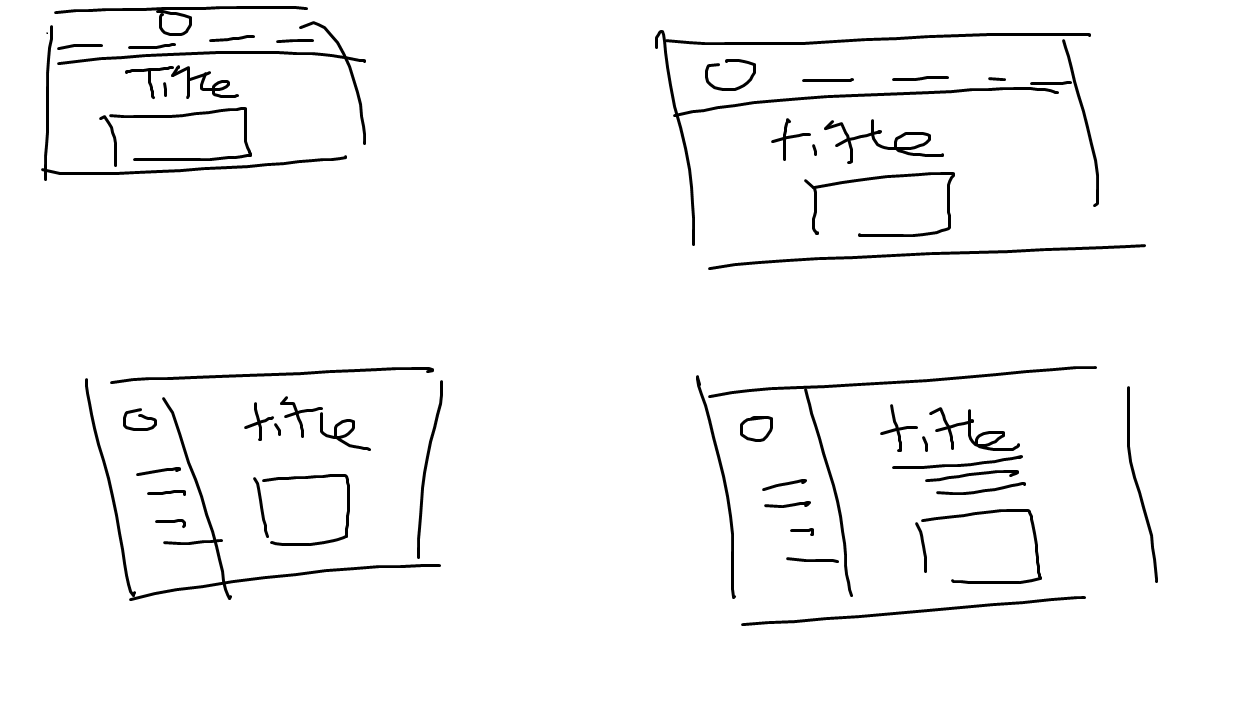 Title
title
title
title